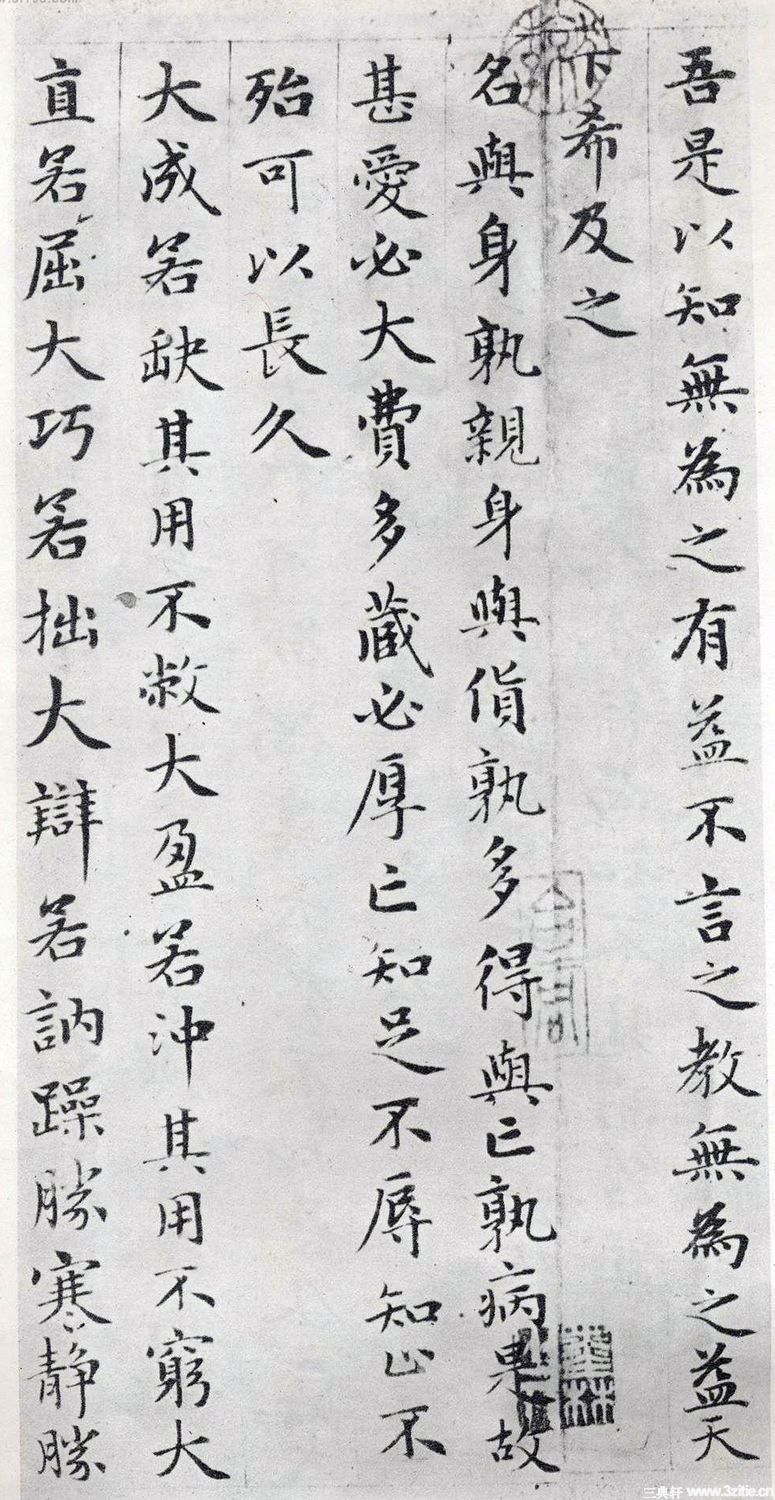 吾是以知無為之有益不言之教無為之益天
下希及之
名與身孰親身與貨孰多得與亡孰病是故
甚愛必大費多蔵必厚亡知足不辱知止不
殆可以長久
大成若缺其用不敝大盈若沖其用不窮大
直若屈大巧若拙大辯若訥躁勝寒静勝
三典轩 www.3zitie.cn